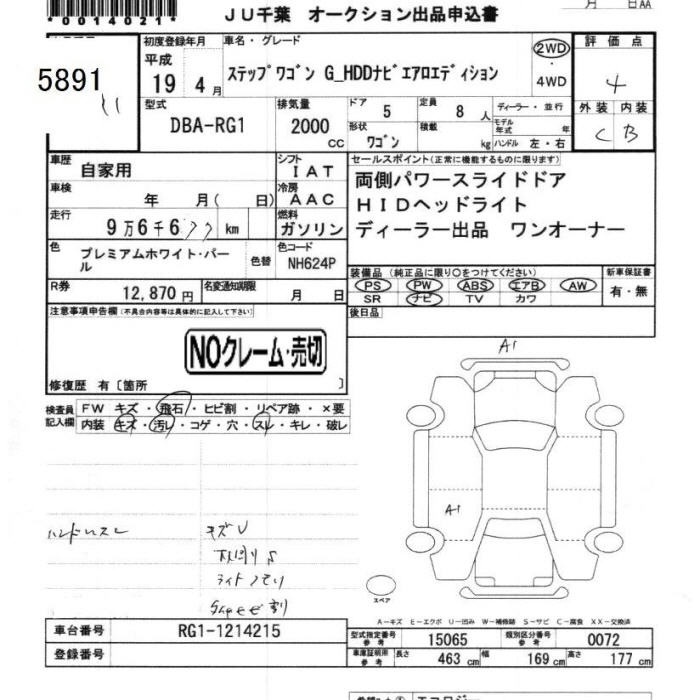 *0014021*
JU千葉 オークション出品申込書
月 日AA
5891
初度登録年月
平成
19 4月
車名・グレード
ステップワゴン G_HDDナビエアロエディション
2WD
・
4WD
評価点
4
型式
DBA-RG1
排気量
2000
cc
ドア
5
定員
8人
形状
ワゴン
積載
kg
ディーラー・並行
モデル年式 年
ハンドル 左・右
外装 内装
C B
車歴
自家用
シフト
IAT
セールスポイント(正常に機能するものに限ります)
両側パワースライドドア
HIDヘッドライト
ディーラー出品 ワンオーナー
車検
年 月( 日)
冷房
AAC
走行
9万6千6 km
燃料
ガソリン
色
プレミアムホワイト・パール
色替
色コード
NH624P
装備品(純正品に限り○をつけてください)
PS PW ABS エアB AW
SR ナビ TV カワ
新車保証書
有・無
R券
12,870円
名変通知期限
月 日
後日品
注意事項申告欄(不具合内容等は具体的に記入して下さい)
NOクレーム・売切
修復歴 有〔箇所 〕
検査員記入欄
FW キズ・飛石・ヒビ割・リペア跡・×要
内装 キズ・汚レ・コゲ・穴・スレ・キレ・破レ
A1
A1
ハンドルスレ
キズU
スペア
A-キズ E-エクボ U-凹み W-補修跡 S-サビ C-腐食 XX-交換済
車台番号
RG1-1214215
登録番号
型式指定番号
参考
15065
類別区分番号
参考
0072
車庫証明用
参考
長さ
463cm
幅
169cm
高さ
177cm